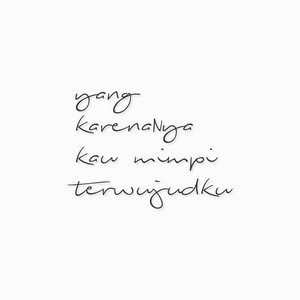 yang
karenaNya
kau mimpi
terwujudku